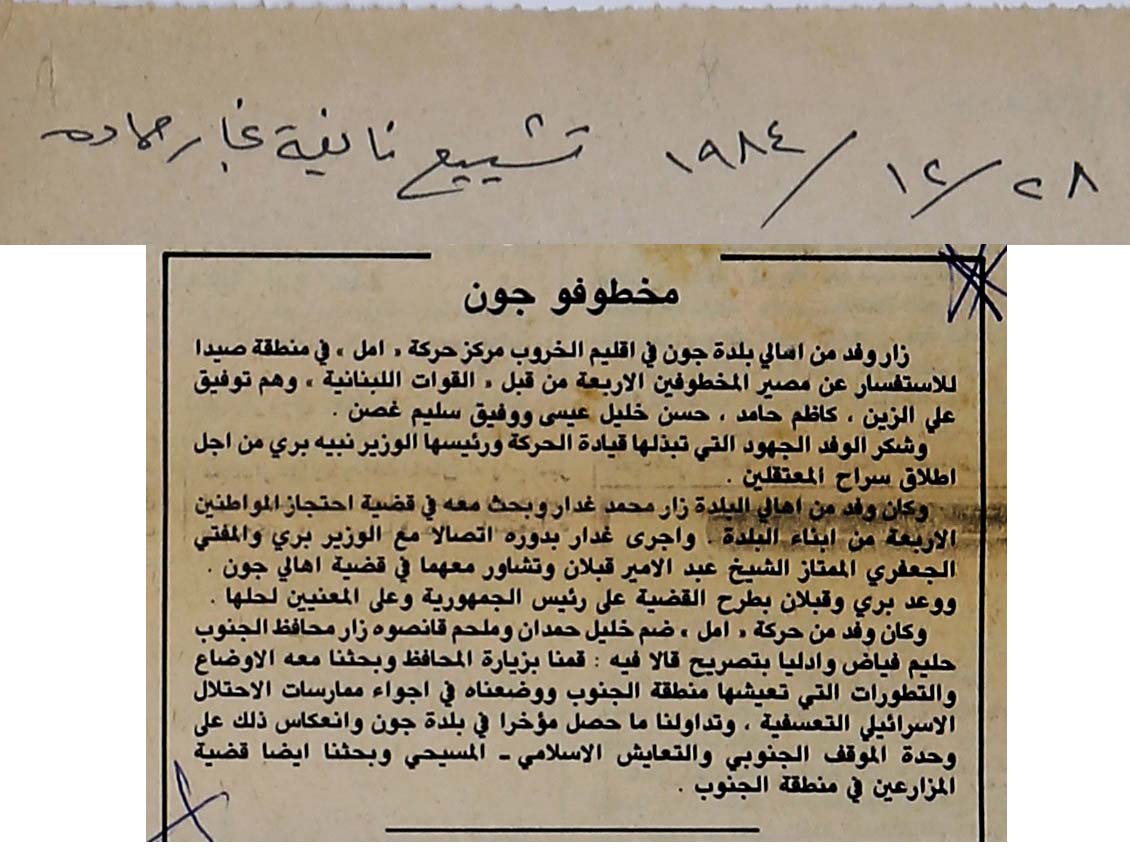 ٢٨/١٢/١٩٨٤ تشييع نايفة نجار حماده
مخطوفو جون
زار وفد من اهالي بلدة جون في اقليم الخروب مركز حركة « امل » في منطقة صيدا
للاستفسار عن مصير المخطوفين الاربعة من قبل « القوات اللبنانية » وهم توفيق
علي الزين ، كاظم حامد ، حسن خليل عيسى ووفيق سليم غصن .
وشكر الوفد الجهود التي تبذلها قيادة الحركة ورئيسها الوزير نبيه بري من اجل
اطلاق سراح المعتقلين .
وكان وفد من اهالي البلدة زار محمد غدار وبحث معه في قضية احتجاز المواطنين
الاربعة من ابناء البلدة . واجرى غدار بدوره اتصالا مع الوزير بري والمفتي
الجعفري الممتاز الشيخ عبد الامير قبلان وتشاور معهما في قضية اهالي جون .
ووعد بري وقبلان بطرح القضية على رئيس الجمهورية وعلى المعنيين لحلها .
وكان وفد من حركة « امل » ضم خليل حمدان وملحم قانصوه زار محافظ الجنوب
حليم فياض وادليا بتصريح قالا فيه : قمنا بزيارة المحافظ وبحثنا معه الاوضاع
والتطورات التي تعيشها منطقة الجنوب ووضعناه في اجواء ممارسات الاحتلال
الاسرائيلي التعسفية ، وتداولنا ما حصل مؤخرا في بلدة جون وانعكاس ذلك على
وحدة الموقف الجنوبي والتعايش الاسلامي ـ المسيحي وبحثنا ايضا قضية
المزارعين في منطقة الجنوب .